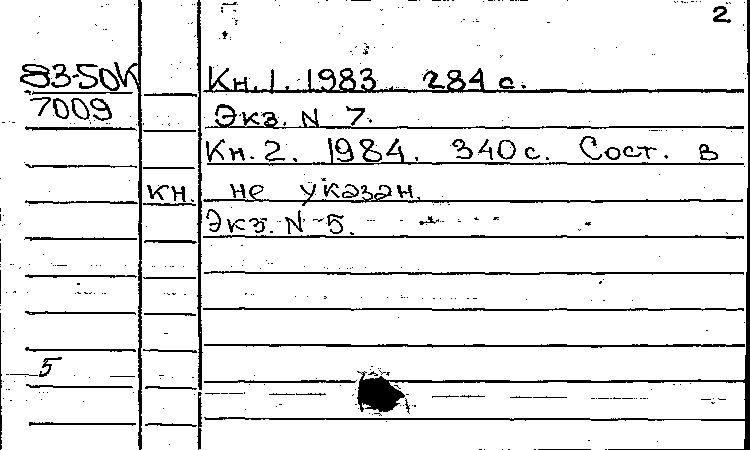 2
83-50К Кн. 1. 1983 284 с.
7009 Экз. N 7.
Кн. 2. 1984. 340 с. Сост. в
кн. не указан.
Экз. N 5.
5